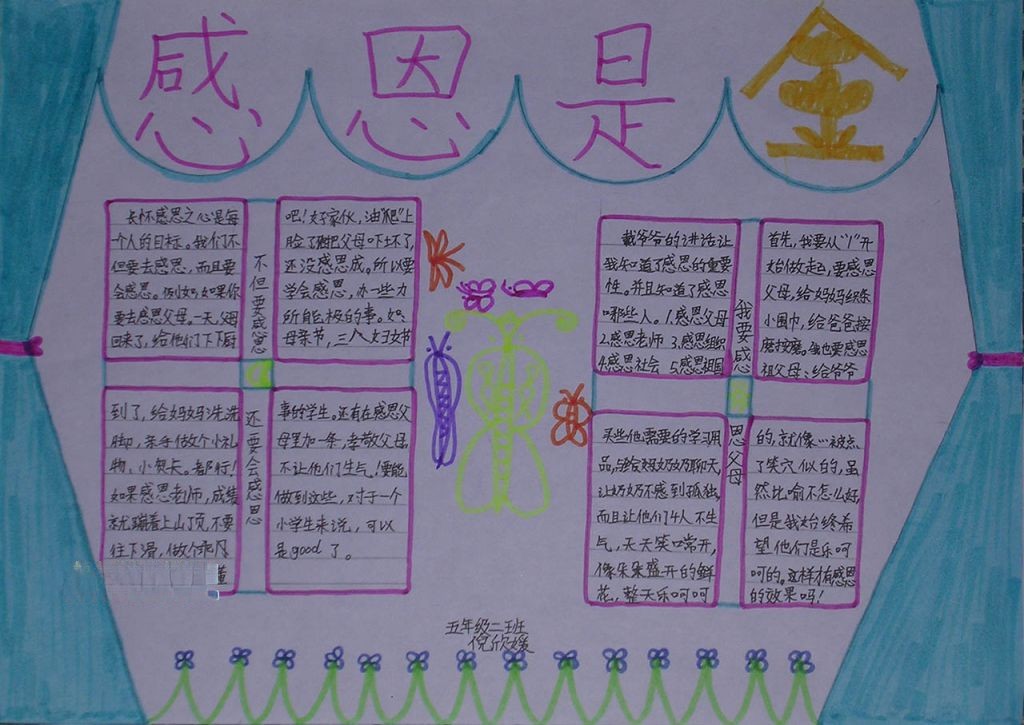 感恩是金
长怀感恩之心是每
个人的目标。我们不
但要去感恩,而且要
会感恩。例如如果你
要去感恩父母。一天,父母
回来了,给他们下下厨
吧!好家伙,油“爬”上
脸了把父母吓坏了,
还没感恩成。所以要
学会感恩,办一些力
所能极的事。如:
母亲节,三八妇女节
不但要感恩
还要会感恩
到了,给妈妈洗洗
脚,亲手做个小礼
物、小贺卡。都行!
如果感恩老师,成绩
就蹦着上山了顶,不要
往下滑,做个乖
事的学生。还有在感恩父
母里加一条,孝敬父母,
不让他们生气!要能
做到这些,对于一个
小学生来说,可以
是good了。
戴爷爷的讲话让
我知道了感恩的重要
性。并且知道了感恩
哪些人。1.感恩父母
2.感恩老师 3.感恩组织
4.感恩社会 5.感恩祖国
首先,我要从“1”开
始做起,要感恩
父母,给妈妈织条
小围巾,给爸爸按
摩按摩。也要感恩
祖父母、给爷爷
我要感
恩父母
买些他需要的学习用
品,与给奶奶聊天,
让奶奶不感到孤独,
而且让他们4人不生
气,天天笑口常开,
像朵朵盛开的鲜
花,整天乐呵呵
的,就像…被点
了笑穴似的,虽
然比喻不怎么好,
但是我始终希
望他们是乐呵
呵的。这样才有感恩
的效果吗!
五年级二班
倪欣媛